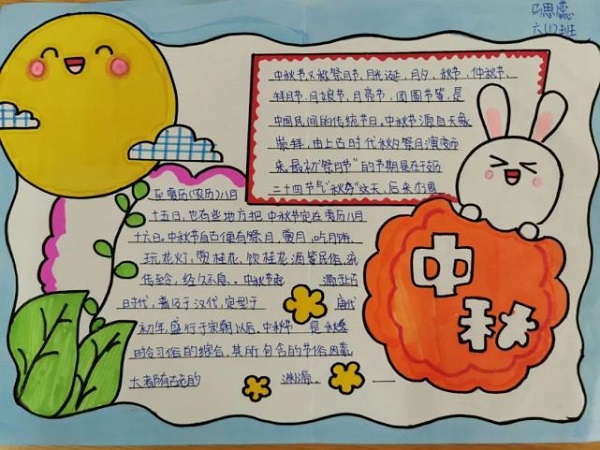 马思蕊
六(1)班
中秋节又称祭月节、月光诞、月夕、秋节、仲秋节、
拜月节、月娘节、月亮节、团圆节等,是
中国民间的传统节日,中秋节源自天象
崇拜,由上古时代秋夕祭月演变而
来。最初“祭月节”的节期是在干支
二十四节气“秋分”这天,后来才调
至夏历(农历)八月
十五日,也有些地方把中秋节定在夏历八月
十六日。中秋节自古便有祭月,赏月,吃月饼,
玩花灯,赏桂花,饮桂花酒等民俗,流
传至今,经久不息。中秋节起源于上古
时代,普及于汉代,定型于唐代
初年,盛行于宋朝以后。中秋节是秋季
时令习俗的综合,其所包含的节俗因素,
大都有古老的渊源。
中
秋